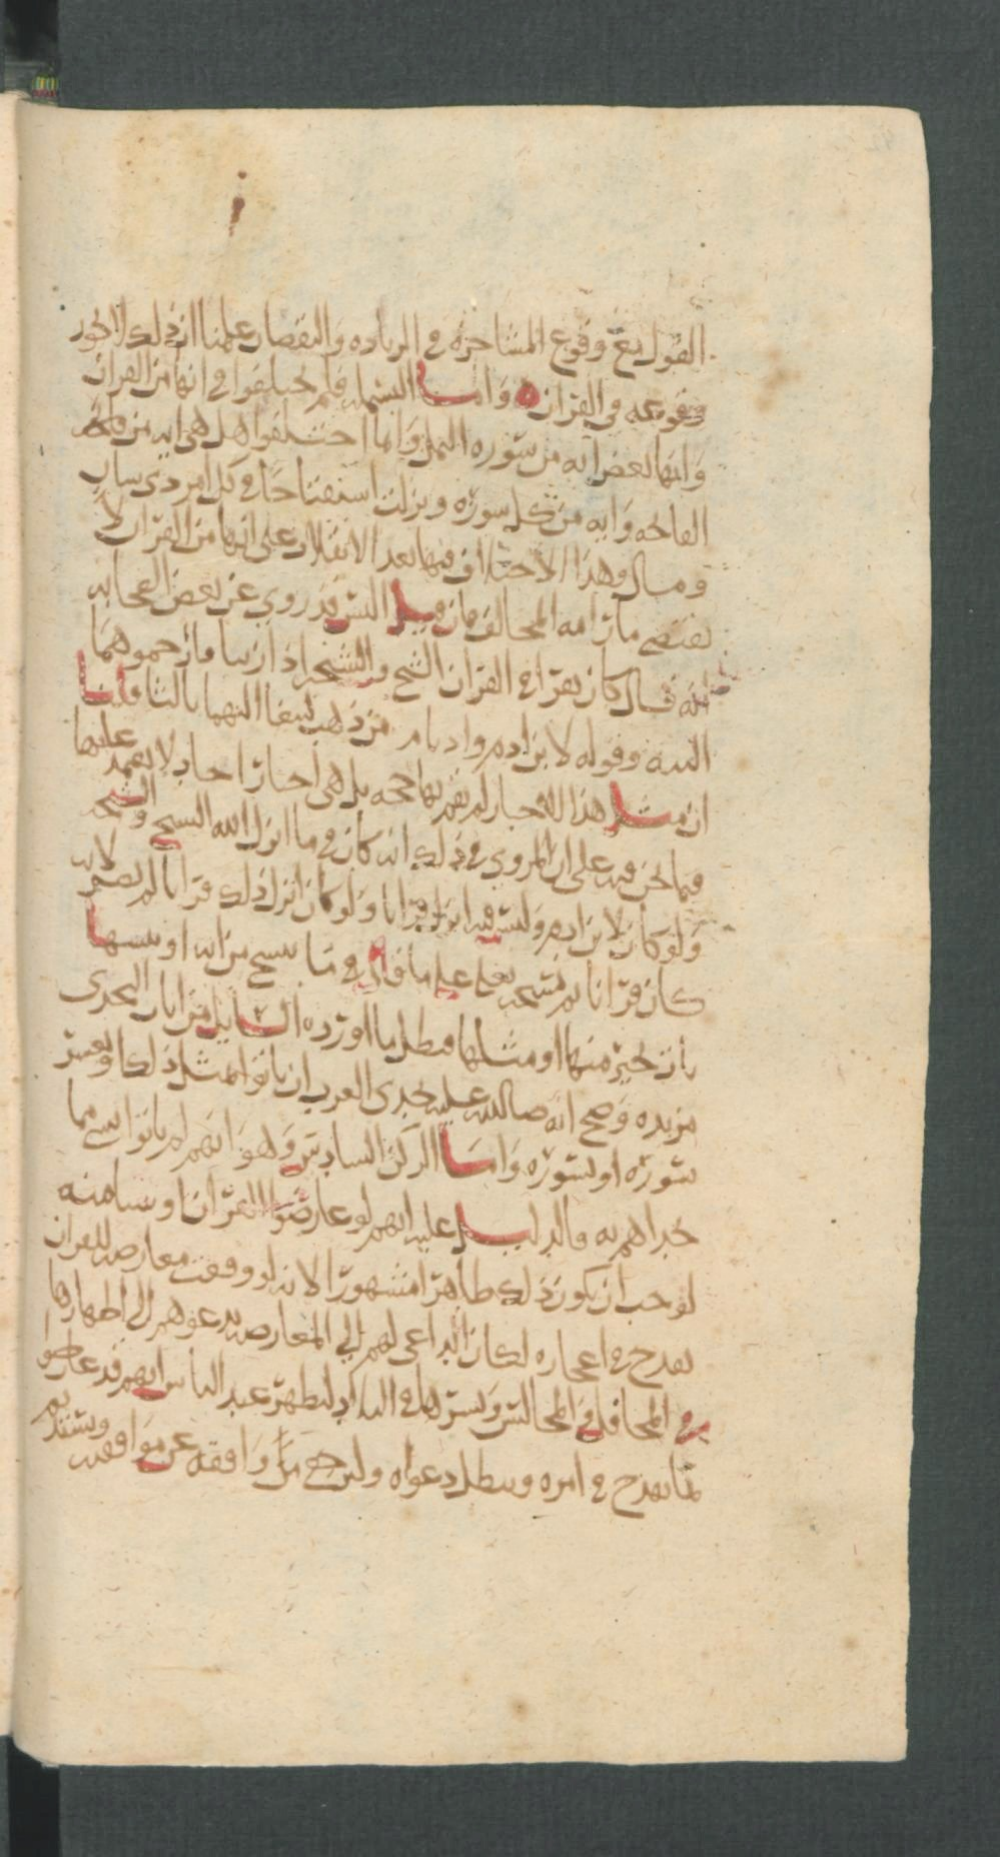 القول يقع وقوع المشاجرة في الزيادة والنقصان علمنا ان ذلك لا يجوز
وقوعه في القران ه واما البسملة فلم يختلفوا في انها من القران
وانها بعض اية من سورة النمل وانما اختلفوا هل هي اية من
الفاتحة واية من كل سورة ونزلت استفتاحا في كل امر ذي بال
وهذا الاختلاف فيها بعد الاتفاق على انها من القران لا
يقتضي ما رامه المخالف فان قيل اليس قد روي عن بعض الصحابة
انه قال كان يقرا في القران الشيخ والشيخة اذا زنيا فارجموهما
البتة وقوله لا بن ادم واديان من ذهب لابتغا اليهما ثالثا قلنا
ان مثل هذا الاخبار لم تقم بها حجة بل هي اخبار احاد لا يعتمد عليها
فيما نحن فيه على ان المروي في ذلك انه كان في ما انزل الله الشيخ والشيخة
ولو كان لابن ادم وليس فيه انزله قرانا ولو كان انزل ذلك قرانا لم يضر لانه
كان قرانا ثم نسخ على ما قال في ما ننسخ من اية او ننسها
نات بخير منها او مثلها فبطل ما اورده السايل من ايات التحدي
مزيدة وصح انه صلى الله عليه تحدى العرب ان ياتوا بمثل ذلك او بعشر
سورة او بسورة واما الركن السادس وهو انهم لم ياتوا بشي مما
تحداهم به فالدليل عليه انهم لو عارضوا القران او شيا منه
لوجب ان يكون ذلك ظاهرا مشهورا لانه لو وقعت معارضة للقران
تقدح في اعجازه لكان الداعي لهم الى المعارضة يدعوهم الى اظهارها
في المحافل والمجالس ونشرها في البلاد ليظهر عند الناس انهم قد عارضوا
بما يقدح في امره ويبطل دعواه وليرجع من وافقه عن موافقته